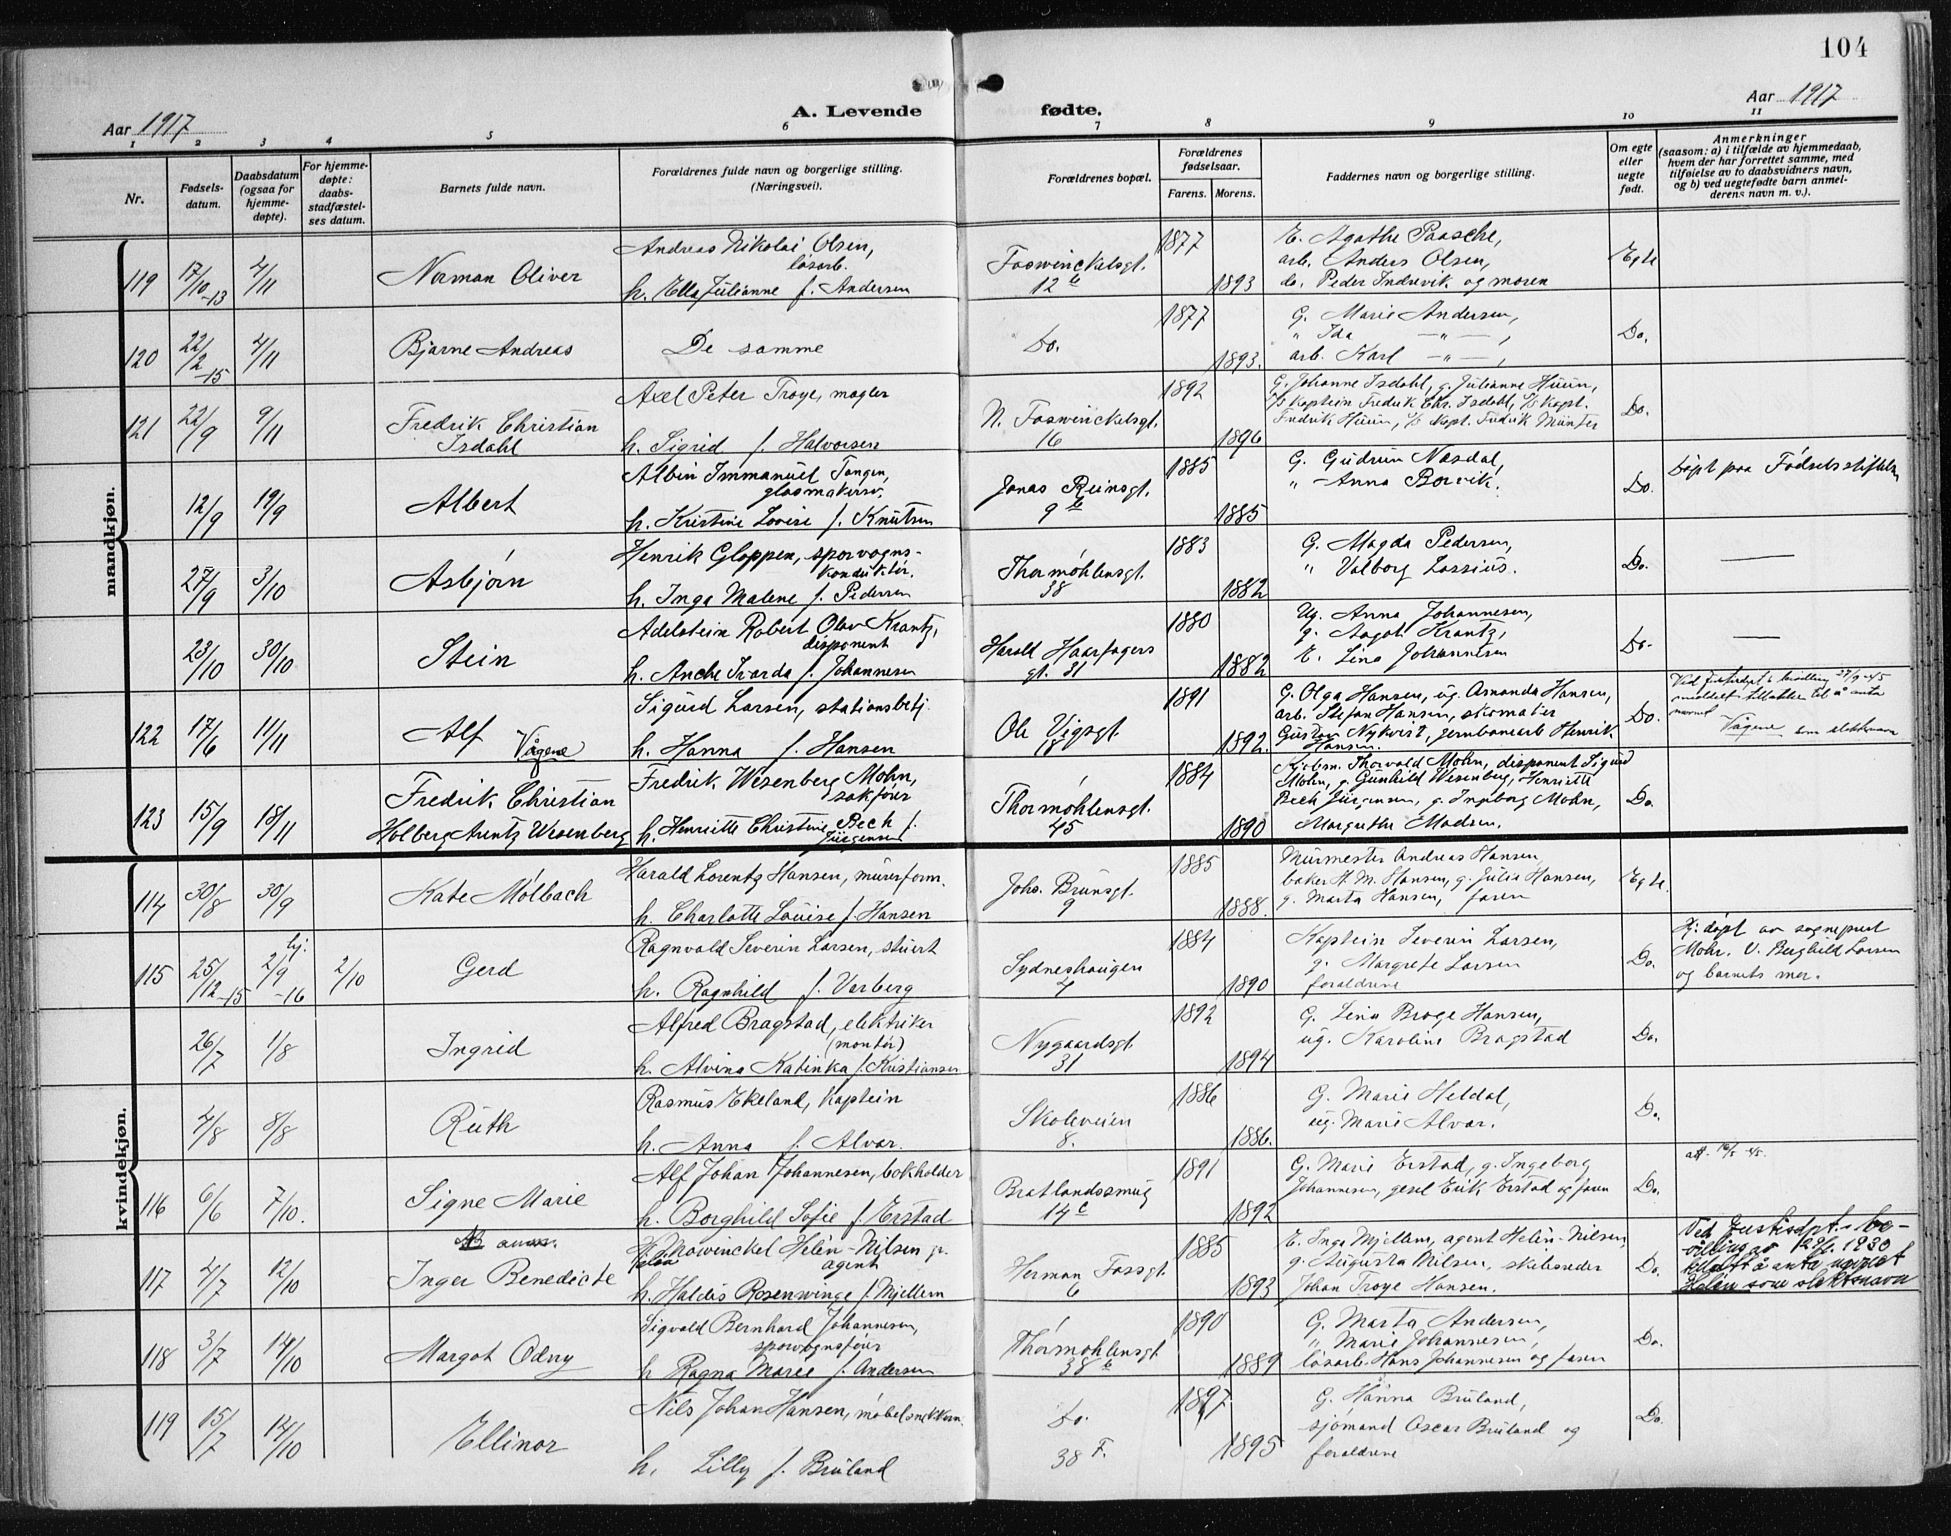 104
Aar 1917
A. Levende
fødte.
Aar 1917
1 2 3 4 5 6 7 8 9 10 11
Nr.
Fødsels-
datum.
Daabsdatum
(ogsaa for
hjemme-
døpte).
For hjemme-
døpte:
daabs-
stadfæstel-
ses datum.
Barnets fulde navn.
Forældrenes fulde navn og borgerlige stilling.
(Næringsvei).
Forældrenes bopæl.
Forældrenes
fødselsaar.
Farens. Morens.
Faddernes navn og borgerlige stilling.
Om egte
eller
uegte
født.
Anmerkninger
(saasom: a) i tilfælde av hjemmedaab,
hvem der har forrettet samme, med
tilføielse av to daabsvidners navn,
og b) ved uegtefødte barn anmel-
derens navn m. v.).
mandkjøn.
119 17/10-13 4/11 Norman Oliver
Andreas Nikolai Olsen,
løsarb.
h. Ella Julianne f. Andersen
Foswinckelsgt.
12 b
1877 1893
E. Agathe Paasche,
arb. Anders Olsen,
do. Peder Indrevik og moren
Egte
120 22/2-15 4/11 Bjarne Andreas
De samme
Do.
1877 1893.
G. Marie Andersen,
" Ida —"—,
arb. Karl —"—,
Do.
121 22/9 9/11 Fredrik Christian
Isdahl
Axel Peter Troye, mægler
h. Sigrid f. Halvorsen
N. Foswinckelsgt.
16
1892 1896
G. Johanne Isdahl, g. Julianne Huun,
Kaptein Fredrik Chr. Isdahl, Kapt.
Fredrik Huun, Kapt. Fridrik Münter
Do.
12/9 19/9 Albert
Albin Immanuel Tangen,
glasmakersv.
h. Kristine Lovise f. Knutsen
Jonas Reinsgt.
9 b
1885 1885
G. Gudrun Nesdal,
" Anna Borvik.
Do.
Døpt paa Fødselsstiftelsen
27/9 3/10 Asbjørn
Henrik Gloppen, sporvogns-
konduktør.
h. Inga Malene f. Pedersen
Thormøhlensgt.
38
1883 1882
G. Magda Pedersen,
" Valborg Lossius.
Do.
—
23/10 30/10 Stein
Adelstein Robert Olav Krantz,
disponent
h. Anche Ivarda f. Johannesen
Harald Haarfagers
gt. 31
1880 1882
Ug. Anna Johannesen,
g. Aagot Krantz,
E. Lina Johannesen
Do.
—
122 17/6 11/11 Alf Vågene
Sigurd Larsen, stationsbetj.
h. Hanna f. Hansen
Ole Vigsgt.
18
1891 1892.
G. Olga Hansen, ug. Amanda Hansen,
arb. Stefan Hansen, skomaker
Gustav Nykvist, jernbanearb Henrik
Hansen.
Do.
27/9-45
meddelt tillatelse til å anta
navnet
Vågene som slektsnavn
123 15/9 18/11 Fredrik Christian
Holberg Arentz Wesenberg
Fredrik Wesenberg Mohn,
sakfører
h. Henriette Christine Bech f.
Jürgensen
Thormøhlensgt.
45
1884 1890
Kjøbm. Thorvald Mohn, disponent Sigurd
Mohn, g. Gunhild Wesenberg, Henriette
Bech Jürgensen, g. Ingeborg Mohn,
Margrethe Madsen.
Do.
kvindekjøn.
114 30/8 30/9 Kate Mølbach
Harald Lorentz Hansen, murerform.
h. Charlotte Louise f. Hansen
Johs. Brunsgt.
9
1885 1888.
Murmester Andreas Hansen,
baker H. M. Hansen, g. Julia Hansen,
g. Marta Hansen, faren
Egte.
115 25/12-15 hj. 2/9-16 2/10 Gerd
Ragnvald Severin Larsen, stuert
h. Ragnhild f. Varberg
Sydneshaugen
4
1884 1890
Kaptein Severin Larsen,
g. Margrete Larsen
forældrene
Do.
Hj. døpt av sognepræst
Mohr. V. Berghild Larsen
og barnets mor.
26/7 1/8 Ingrid
Alfred Bragstad, elektriker
(montør)
h. Alvina Katinka f. Kristiansen
Nygaardsgt.
31
1892 1894
G. Lina Broge Hansen,
ug. Karoline Bragstad
Do.
4/8 8/8 Ruth
Rasmus Ekeland, Kaptein
h. Anna f. Alvær.
Skoleveien
8.
1886 1886.
G. Marie Heldal,
ug. Marie Alvær.
Do.
116 6/6 7/10. Signe Marie
Alf Johan Johannesen, bokholder
h. Borghild Sofie f. Erstad
Bratlandssmug
14 c
1891 1892
G. Marie Erstad, g. Ingeborg
Johannesen, gesel Erik Erstad og faren
Do.
117 4/7 12/10 Inger Benedicte
Mowinckel Helén-Nilsen jr.
agent
h. Haldis Rosenwinge f. Mjellem
Herman Fossgt.
6
1885 1893
E. Inga Mjellem, agent Helén-Nilsen,
g. Augusta Nilsen, skibsreder
Johan Troye Hansen.
Do.
Ved Justisdpt.s be-
villing av 1930
tillatt å anta navnet
Helén som slektsnavn
118 3/7 14/10 Margot Odny
Sigvald Bernhard Johannesen,
sporvognsfører
h. Ragna Marie f. Andersen
Thormøhlensgt.
38 b
1890 1889
G. Marta Andersen,
" Marie Johannesen,
løsarb. Hans Johannesen og faren
Do.
119 15/7 14/10 Ellinor
Nils Johan Hansen, møbelsnekkersv.
h. Lilly f. Bruland
Do.
38 F.
1897 1895
G. Hanna Bruland,
sjømand Oscar Bruland og
forældrene
Do.